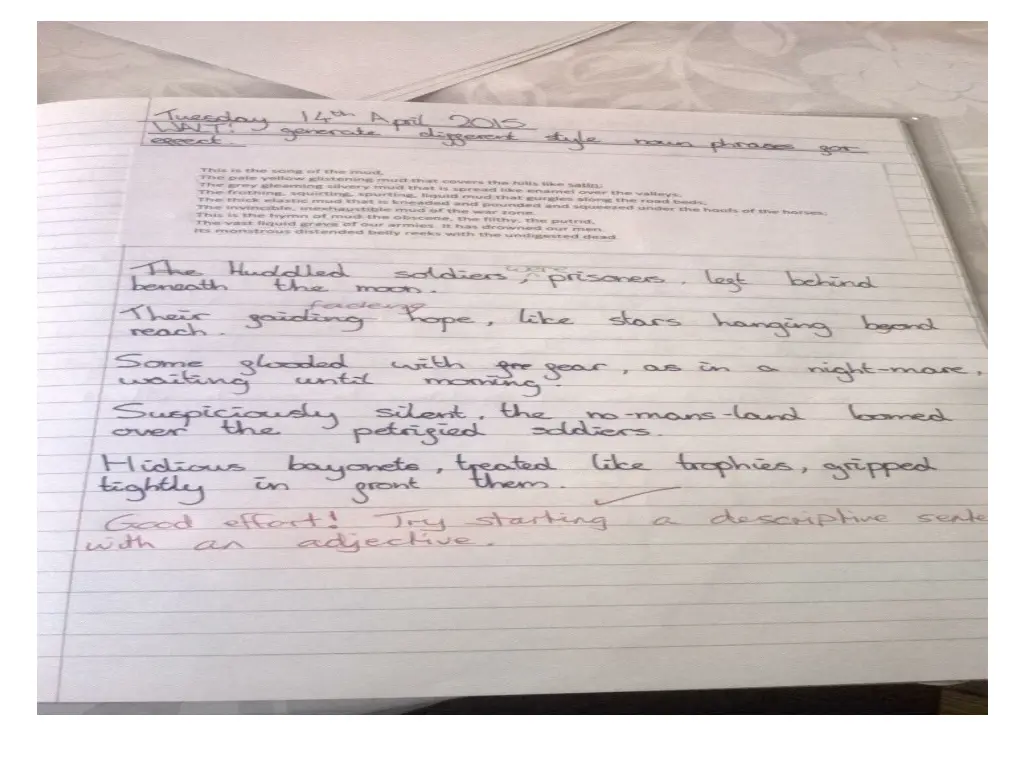 Tuesday 14th April 2015
WALT: generate different style noun phrases for
effect.
This is the song of the mud,
The pale yellow glistening mud that covers the hills like satin;
The grey gleaming silvery mud that is spread like enamel over the valleys,
The frothing, squirting, spurting, liquid mud that gurgles along the road beds,
The thick elastic mud that is kneaded and pounded and squeezed under the hoofs of the horses;
The invincible, inexhaustible mud of the war zone.
This is the hymn of mud the obscene, the filthy, the putrid,
The vast liquid grave of our armies. It has drowned our men.
Its monstrous distended belly reeks with the undigested dead.
were
The Huddled soldiers, prisoners, left behind
beneath the moon.
fadeing
Their gaiding hope, like stars hanging beyond
reach.
Some flooded with fear, as in a night-mare,
waiting until morning.
Suspiciously silent, the no-mans-land loomed
over the petrified soldiers.
Hidious bayonets, treated like trophies, gripped
tightly in front them.
Good effort! Try starting a descriptive sente
with an adjective.